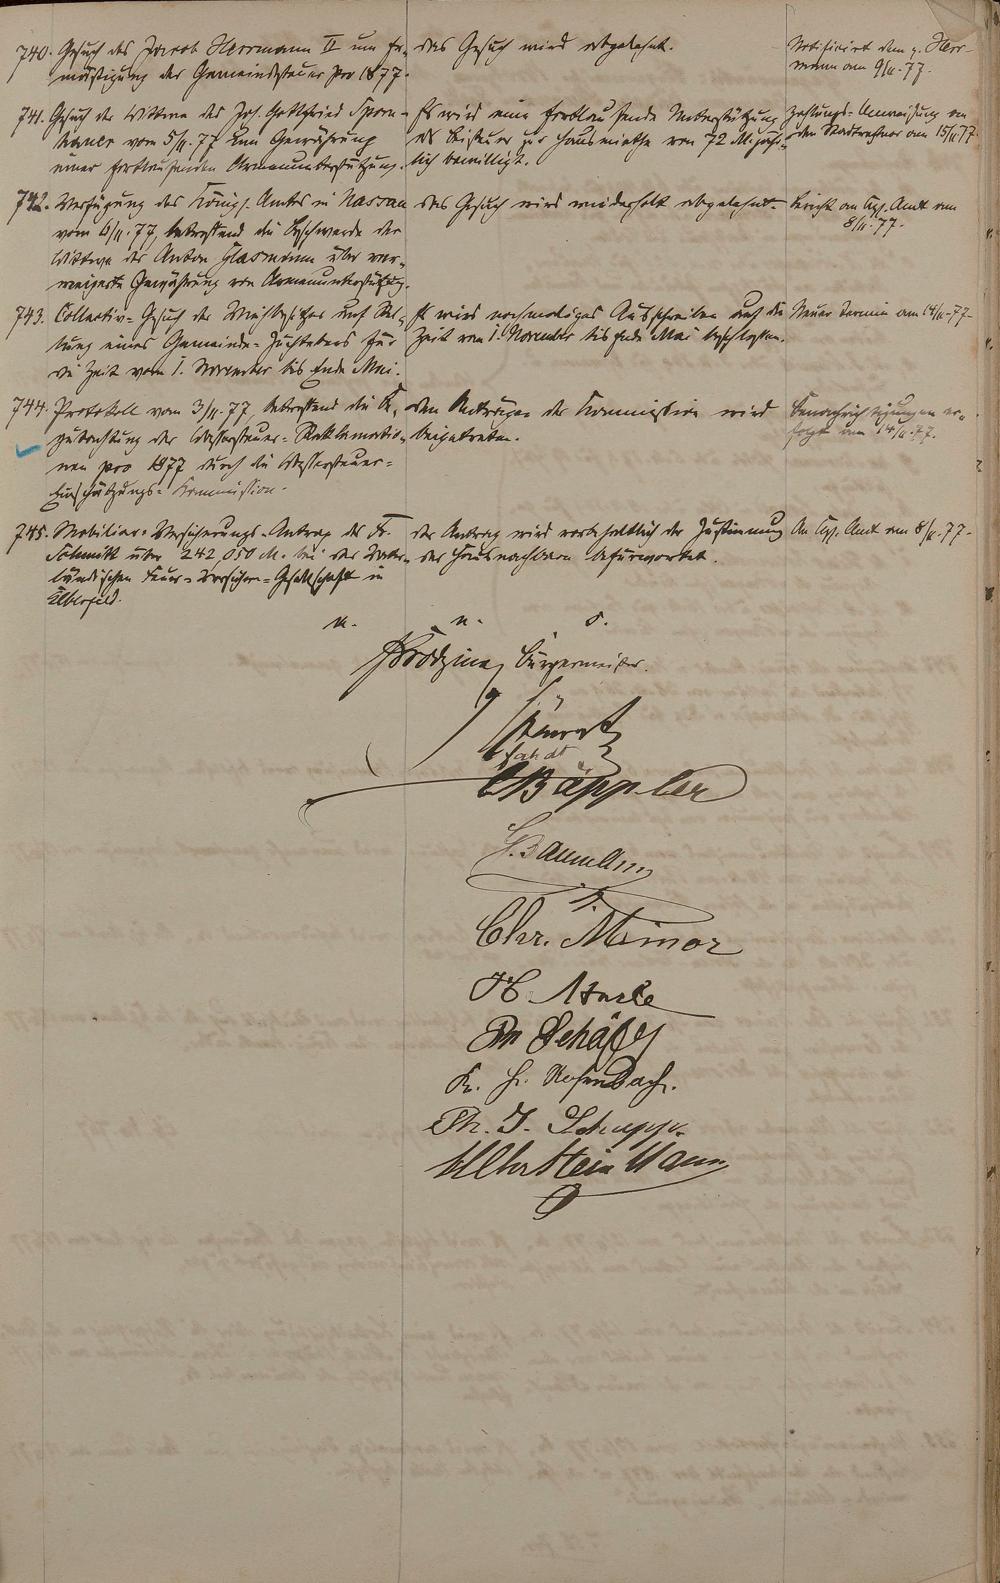 740. Gesuch des Jacob Herrmann II um Er-
mäßigung der Gemeindesteuer pro 1877.
das Gesuch wird abgelehnt.
Notificirt dem p. Herr-
mann am 9/11.77.
741. Gesuch der Wittwe des Joh. Gottfried
vom 5/11.77 um Gewährung
einer fortlaufenden Armenunterstützung.
Es wird eine fortlaufende Unterstützung
als Beisteuer zur Hausmiethe von 72 M. jähr-
lich bewilligt.
Zahlungs-Anweisung an
den Stadtrechner am 15/11.77.
742. Verfügung des Königl. Amtes in Nassau
vom 6/11.77, betreffend die Beschwerde der
Wittwe des Anton Glasmann über ver-
weigerte Gewährung von Armenunterstützung.
das Gesuch wird wiederholt abgelehnt.
Bericht an Kgl. Amt am
8/11.77.
743. Collectiv-Gesuch der Viehbesitzer auf Hal-
tung eines Gemeinde-Zuchtebers für
die Zeit vom 1. November bis Ende Mai.
Es wird nochmaliges Ausschreiben auf die
Zeit vom 1. November bis Ende Mai beschlossen.
Neuer Termin am 14/11.77.
744. Protokoll vom 3/11.77, betreffend die Be-
gutachtung der Klassensteuer-Reklamatio-
nen pro 1877 durch die Klassensteuer-
Einschätzungs-Kommission.
den Anträgen der Kommission wird
beigetreten.
Benachrichtigungen er-
folgt am 14/11.77.
745. Mobiliar-Versicherungs-Antrag des Fr.
Schmitt über 242,050 M. bei der Vater-
ländischen Feuer-Versicher.-Gesellschaft in
Elberfeld.
der Antrag wird vorbehaltlich der Zustimmung
der Hausnachbarn befürwortet.
An Kgl. Amt am 8/11.77.
v. g. u.
Bürgermeister.
Bäppler
G. Baumann
Chr. Minor
Ph Schäfer
K. H. Rosenbach.
Ph. J. Schupp.